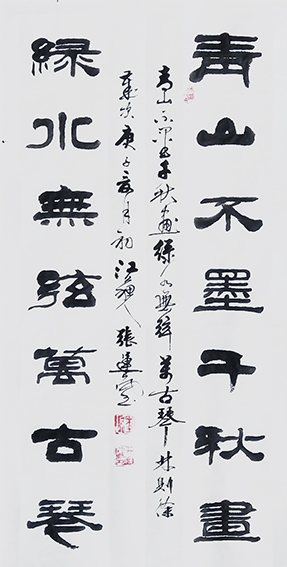 青山不墨千秋畫
青山不墨千秋画绿水無弦万古琴林则徐
歲次庚子亥月初江理人張
綠水無弦萬古琴